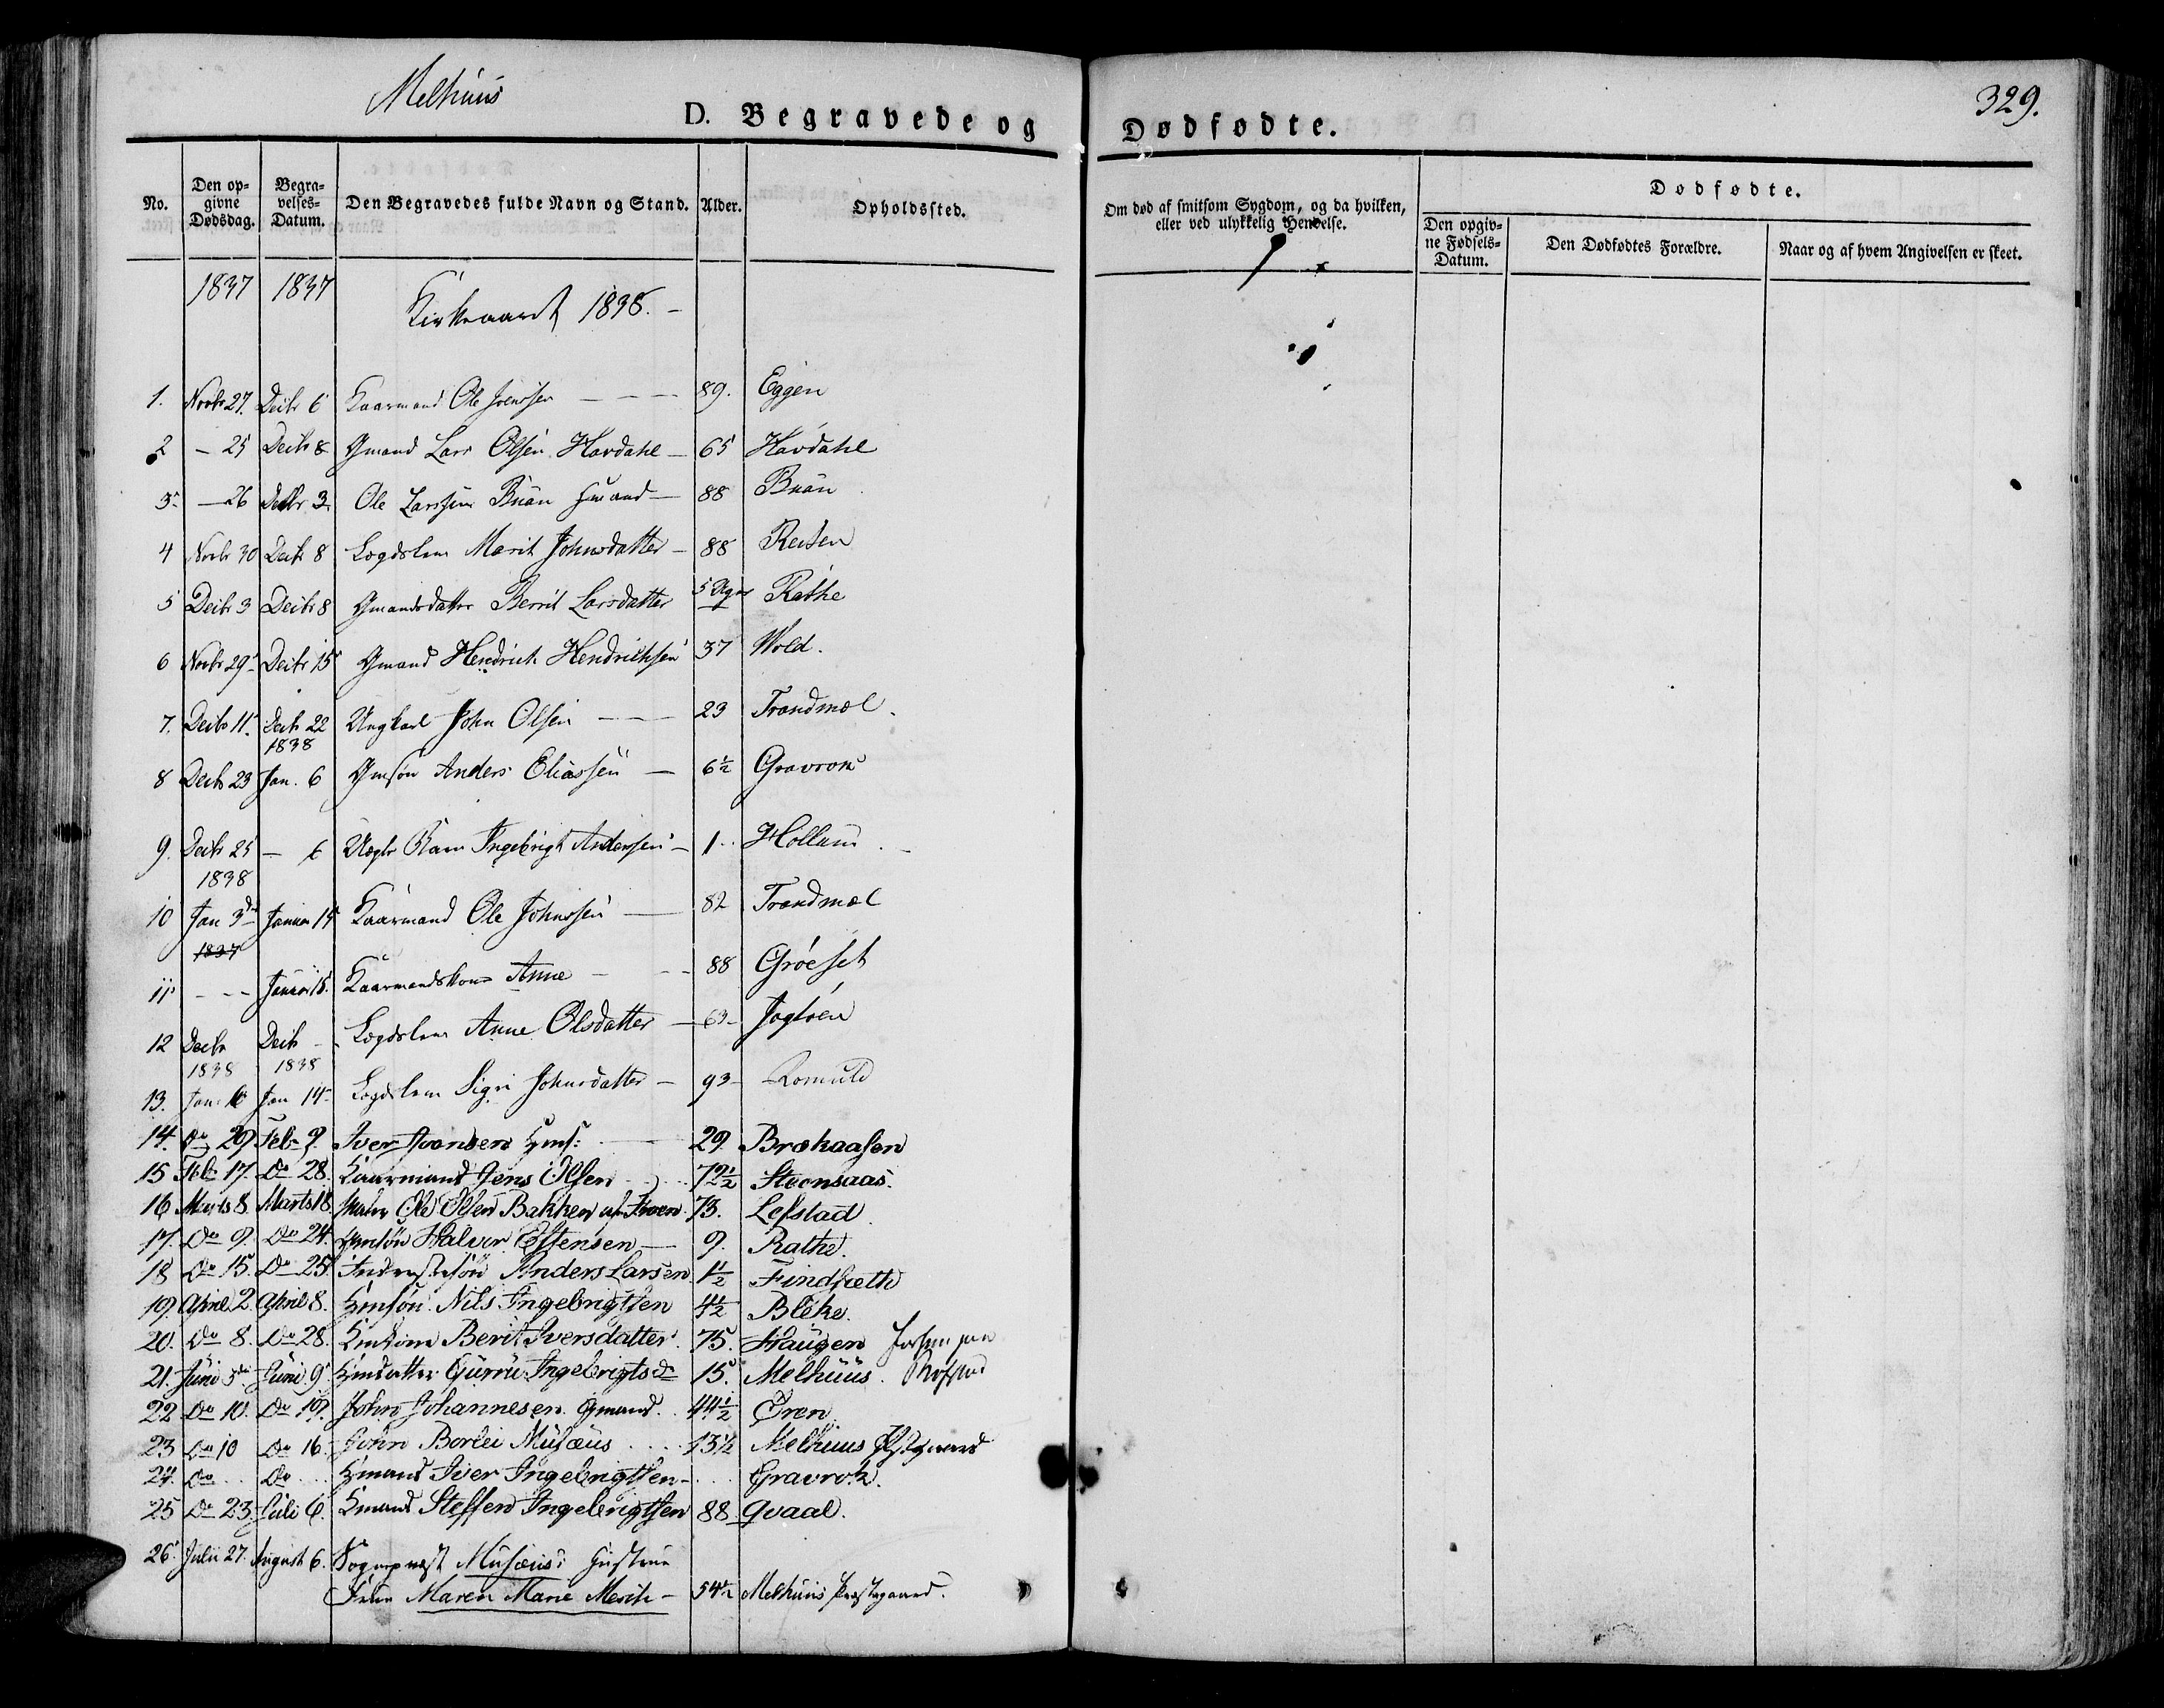 Melhuus
329.
D. Begravede og Dødfødte.
No. Den opgivne Dødsdag. Begravelses-Datum. Den Begravedes fulde Navn og Stand. Alder. Opholdssted. Om død af smitsom Sygdom, og da hvilken, eller ved ulykkelig Hendelse. Dødfødte.
Den opgivne Fødsels-Datum. Den Dødfødtes Forældre. Naar og af hvem Angivelsen er skeet.
1837 1837 Kirkeaaret 1838.
1. Novbr 27. Decbr 6 Kaarmand Ole 89. Eggen
2 - 25 Decbr 8 Gmand Lars Olsen Havdahl 65 Havdahl
3 - 26 Decbr 3 Ole Larssen Buan 88 Buan
4 Novbr 30 Decbr 8 Lægdslem Marit Johnsdatter 88 Reiten
5 Decbr 3 Decbr 8 Gmandsdatter Berrit Larsdatter 5 Uger Rathe
6 Novbr 29 Decbr 15 Gmand Hendrich Hendrichsen 37 Wold.
7. Decbr 11. Decbr 22 Ungkarl John Olsen 23 Trandmæl
1838
8 Decbr 23 Jan. 6 Gmsøn Anders Eliassen 6½ Gravrok
9. Decbr 25 - 6 Uægte Barn Ingebrigt Andersen 1 Hollum
1838
10 Jan 3die Januar 14 Kaarmand Ole Johnssen 82 Trandmæl
1837
11 - - Januar 18. Kaarmandskone Anne 88 Grøeset
12 Decbr Decbr Lægdslem Anne Olsdatter 63 Jagtøen
1838 1838
13. Jan. 10 Jan 14 Lægdslem Sigri Johnsdatter 93 Romuld
14. Do 29 Febr 9. Iver Hms: 29. Bræhaasen
15 Feb 17. Do 28. Kaarmand Jens Olsen 79½ Steensaas.
16 Marts 8. Marts 18. Ole Olsen Bakken 73. Lefstad
17. Do 9. Do 24. Hmsøn Halvor Estensen 9. Rathe.
18 Do 15. Do 25. Inderstesøn Anders Larsen 1½ Findsæth
19. April 2. April 8. Hmsøn Nils Ingebrigtsen 4½ Bleke.
20. Do 8. Do 28. Hmkone Berit Iversdatter 75. Haugen
21. Juni 3die Juni 9. Hmdatter Gurru Ingebrigtsdr 15. Melhuus.
22 Do 10. Do 19. John Johannesen Gmand. 44½ Øren
23 Do 10 Do 16. John Borlei Musæus 13½ Melhuus Præstgaard
24. Do Do Hmand Iver Ingebrigtsen Gravrok.
25 Do 23. Juli 6. Hmand Steffen Ingebrigtsen 88 Qvaal.
26. Julii 27. August 6. Sognepræst Musæus's Hustrue
Frue Maren Marie 54½ Melhuus Præstegaard.